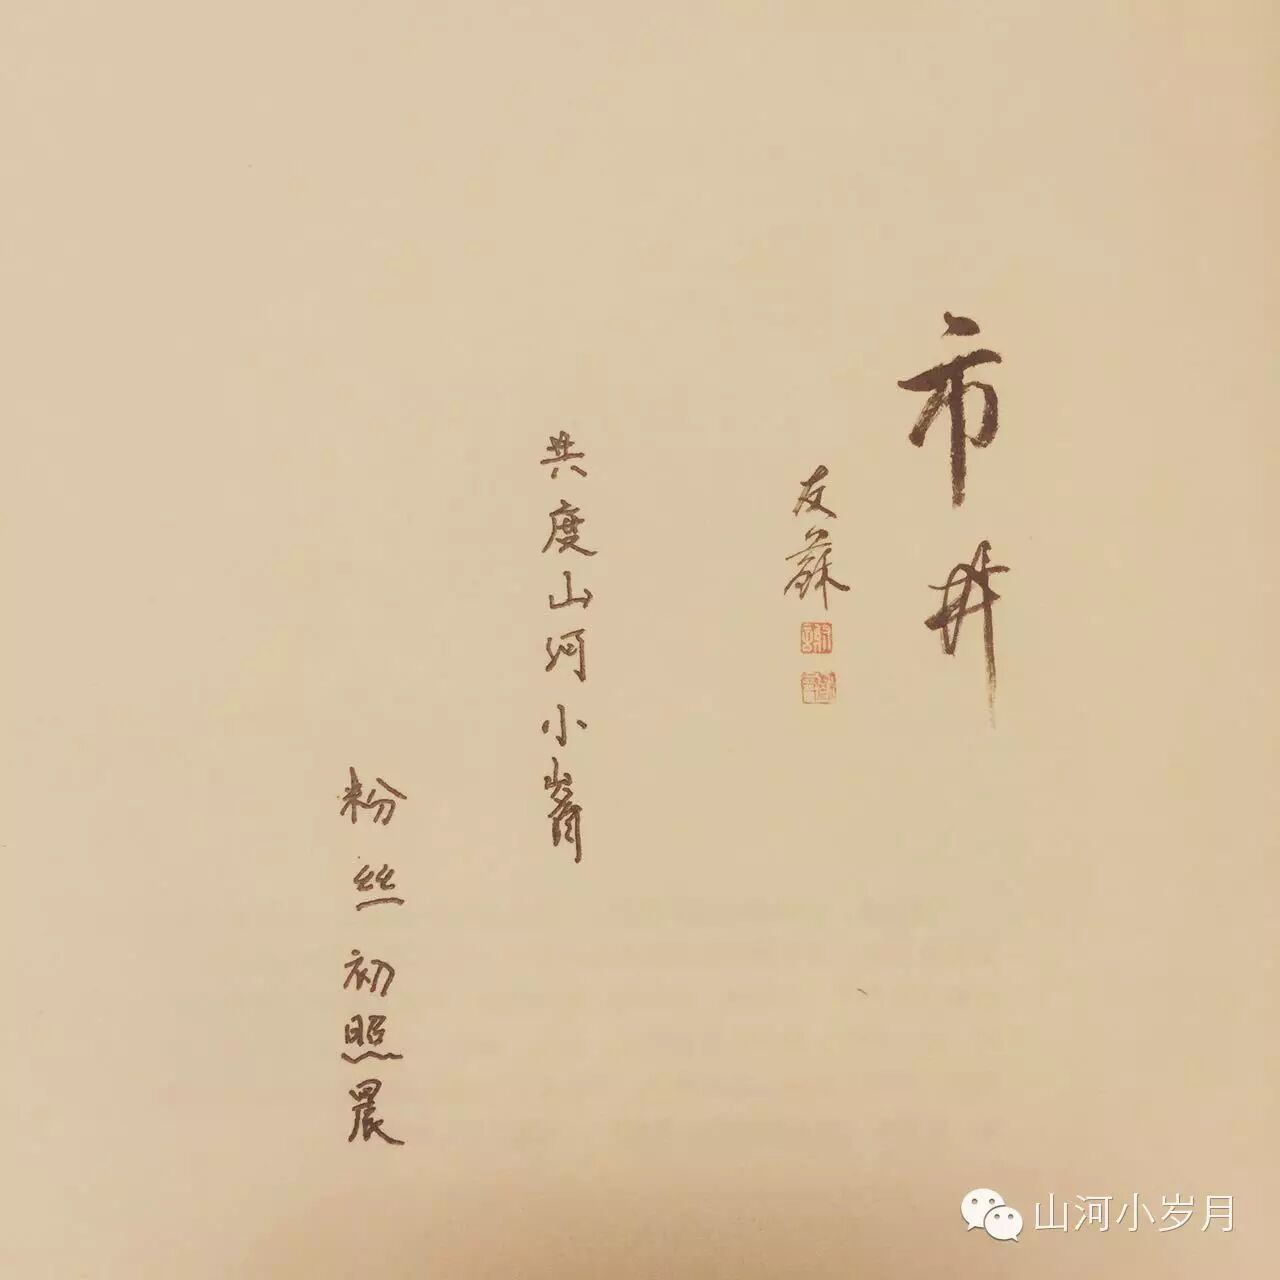 市井
友蘇
共度山河小歲月
粉丝初照晨
山河小岁月